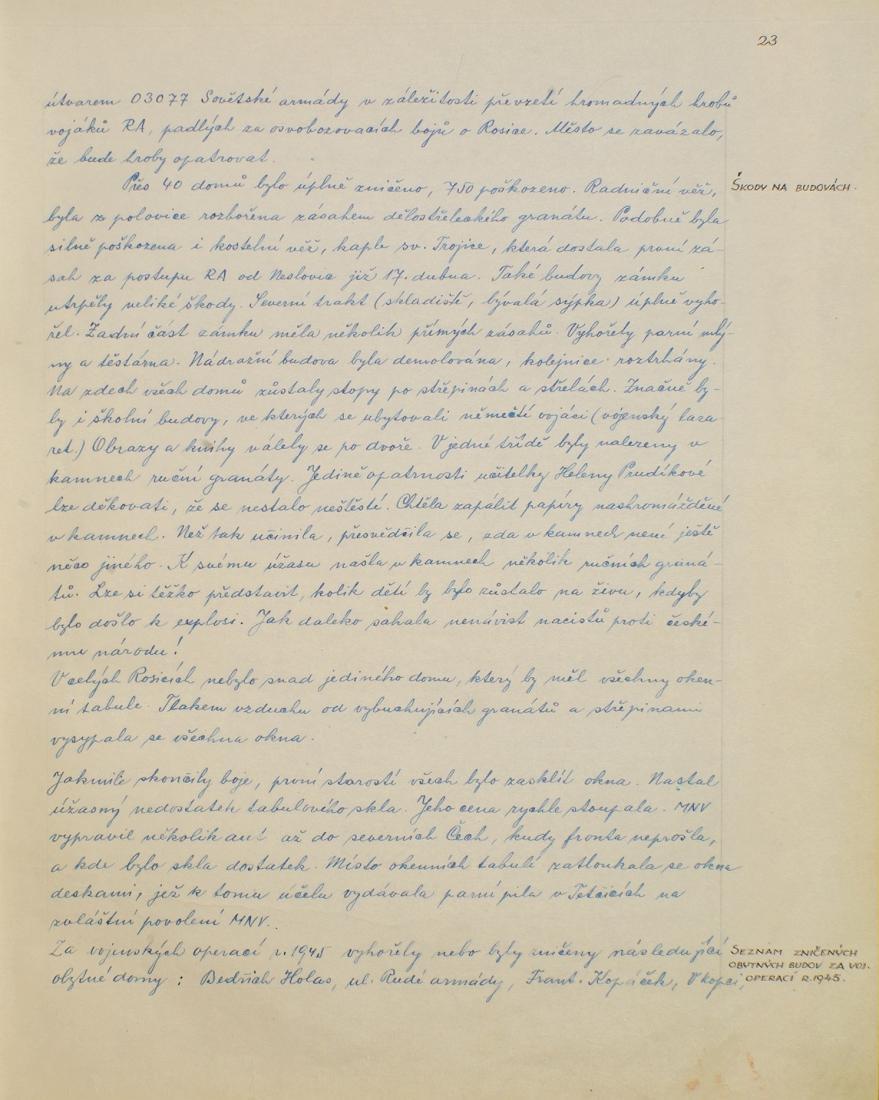 23
útvarem 03077 Sovětské armády v záležitosti převzetí hromadných hrobů
vojáků RA, padlých za osvobozovacích bojů o Rosice. Město se zavázalo,
že bude hroby opatrovat.
Přes 40 domů bylo úplně zničeno, 750 poškozeno. Radniční věž,
ŠKODY NA BUDOVÁCH.
byla z polovice rozbořena zásahem dělostřeleckého granátu. Podobně byla
silně poškozena i kostelní věž, kaple sv. Trojice, která dostala první zá-
sah za postupu RA od Neslovic již 17. dubna. Také budovy zámku
utrpěly veliké škody. Severní trakt (skladiště, bývalá sýpka) úplně vyho-
řel. Zadní část zámku měla několik přímých zásahů. Vyhořely parní mlý-
ny a těstárna. Nádražní budova byla demolována, kolejnice roztrhány.
Na zdech všech domů zůstaly stopy po střepinách a střelách. Značně by-
ly i školní budovy, ve kterých se ubytovali němečtí vojáci (vojenský laza-
ret.) Obrazy a knihy válely se po dvoře. V jedné třídě byly nalezeny v
kamnech ruční granáty. Jedině opatrnosti učitelky Heleny Prudíkové
lze děkovati, že se nestalo neštěstí. Chtěla zapálit papíry nashromážděné
v kamnech. Než tak učinila, přesvědčila se, zda v kamnech není ještě
něco jiného. K svému úžasu našla v kamnech několik ručních graná-
tů. Lze si těžko představit, kolik dětí by bylo zůstalo na živu, kdyby
bylo došlo k explosi. Jak daleko sahala nenávist nacistů proti české-
mu národu!
V celých Rosicích nebylo snad jediného domu, který by měl všechny oken-
ní tabule. Tlakem vzduchu od vybuchujících granátů a střepinami
vysypala se všechna okna.
Jakmile skončily boje, první starostí všech bylo zasklít okna. Nastal
úžasný nedostatek tabulového skla. Jeho cena rychle stoupala. MNV
vypravil několik aut až do severních Čech, kudy fronta neprošla,
a kde bylo skla dostatek. Místo okenních tabulí zatloukala se okna
deskami, jež k tomu účelu vydávala parní pila v Tetčicích na
zvláštní povolení MNV.
Za vojenských operací r. 1945 vyhořely nebo byly zničeny následující
obytné domy: Bedřich Holas, ul. Rudé armády, Frant. Kopáček, V kopci,
SEZNAM ZNIČENÝCH
OBYTNÝCH BUDOV ZA VOJ.
OPERACÍ R.1945.